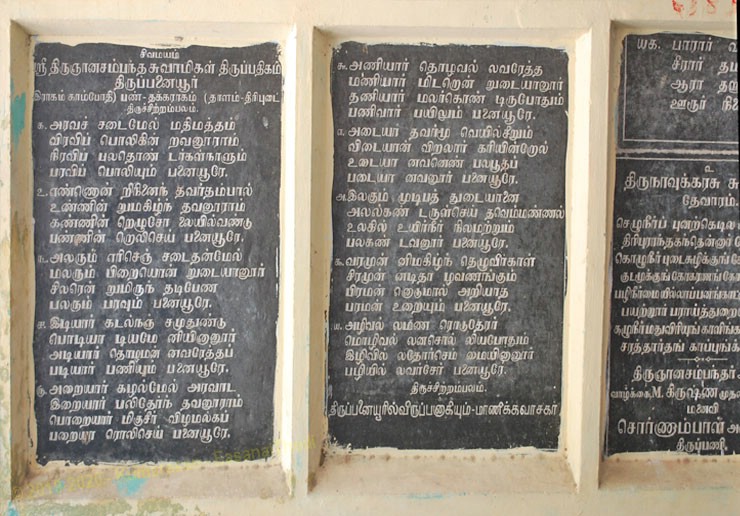 சிவமயம்
ஸ்ரீ திருஞானசம்பந்த சுவாமிகள் திருப்பதிகம்
திருப்பனையூர்
(இராகம் காம்போதி) பண்-தக்கராகம் (தாளம்-திரிபுடை)
திருச்சிற்றம்பலம்.
௧. அரவச் சடைமேல் மதிமத்தம்
விரவிப் பொலிகின் றவனூராம்
நிரவிப் பலதொண் டர்கள்நாளும்
பரவிப் பொலியும் பனையூரே.
௨. எண்ணொன் றிநினைந் தவர்தம்பால்
உண்ணின் றுமகிழ்ந் தவனூராம்
கண்ணின் றெழுசோ லையில்வண்டு
பண்ணின் றொலிசெய் பனையூரே.
௩. அலரும் எரிசெஞ் சடைதன்மேல்
மலரும் பிறையொன் றுடையானூர்
சிலரென் றுமிருந் தடிபேண
பலரும் பரவும் பனையூரே.
௪. இடியார் கடல்நஞ் சமுதுண்டு
பொடியா டியமே னியினானூர்
அடியார் தொழமன் னவரேத்தப்
படியார் பணியும் பனையூரே.
௫. அறையார் கழல்மேல் அரவாட
இறையார் பலிதேர்ந் தவனூராம்
பொறையார் மிகுசீர் விழமல்கப்
பறையா ரொலிசெய் பனையூரே.
௬. அணியார் தொழவல் லவரேத்த
மணியார் மிடறொன் றுடையானூர்
தணியார் மலர்கொண் டிருபோதும்
பணிவார் பயிலும் பனையூரே.
௭. அடையா தவர்மூ வெயில்சீறும்
விடையான் விறலார் கரியின்தோல்
உடையா னவனெண் பலபூதப்
படையா னவனூர் பனையூரே.
௮. இலகும் முடிபத் துடையானை
அலல்கண் டருள்செய் தவெம்மண்ணல்
உலகில் உயிர்நீர் நிலமற்றும்
பலகண் டவனூர் பனையூரே.
௯. வரமுன் னிமகிழ்ந் தெழுவீர்காள்
சிரமுன் னடிதா ழவணங்கும்
பிரமன் னெடுமால் அறியாத
பரமன் உறையும் பனையூரே.
௰. அழிவல் லமண ரொடுதேரர்
மொழிவல் லனசொல் லியபோதும்
இழிவில் லதோர்செம் மையினானூர்
பழியில் லவர்சேர் பனையூரே.
திருச்சிற்றம்பலம்.
திருப்பனையூரில்விருப்பனாகியும்-மாணிக்கவாசகர்
௰௧. பாரார்
சீரார்
ஆரா
ஊரூர்
உ
திருநாவுக்கரசு
தேவாரம்.
செழுநீர்ப் புனற்கெடில
திரிபுராந்தகந்தென்னூர்
கொழுநீர் புடைசுழிக்குங்
குடமூக்குங்கோகரணங்கோ
பழிநீர்மையில்லாப்பனங்காட்
பயற்றூர் பராய்த்துறை
கழுநீர்மதுவிரியுங்காளிங்
சரத்தார்தங் காப்புக்
திருஞானசம்பந்தர்
வாழ்கை, M. கிருஷ்ண
மனைவி
சொர்ணம்பாள்
திருப்பணி.